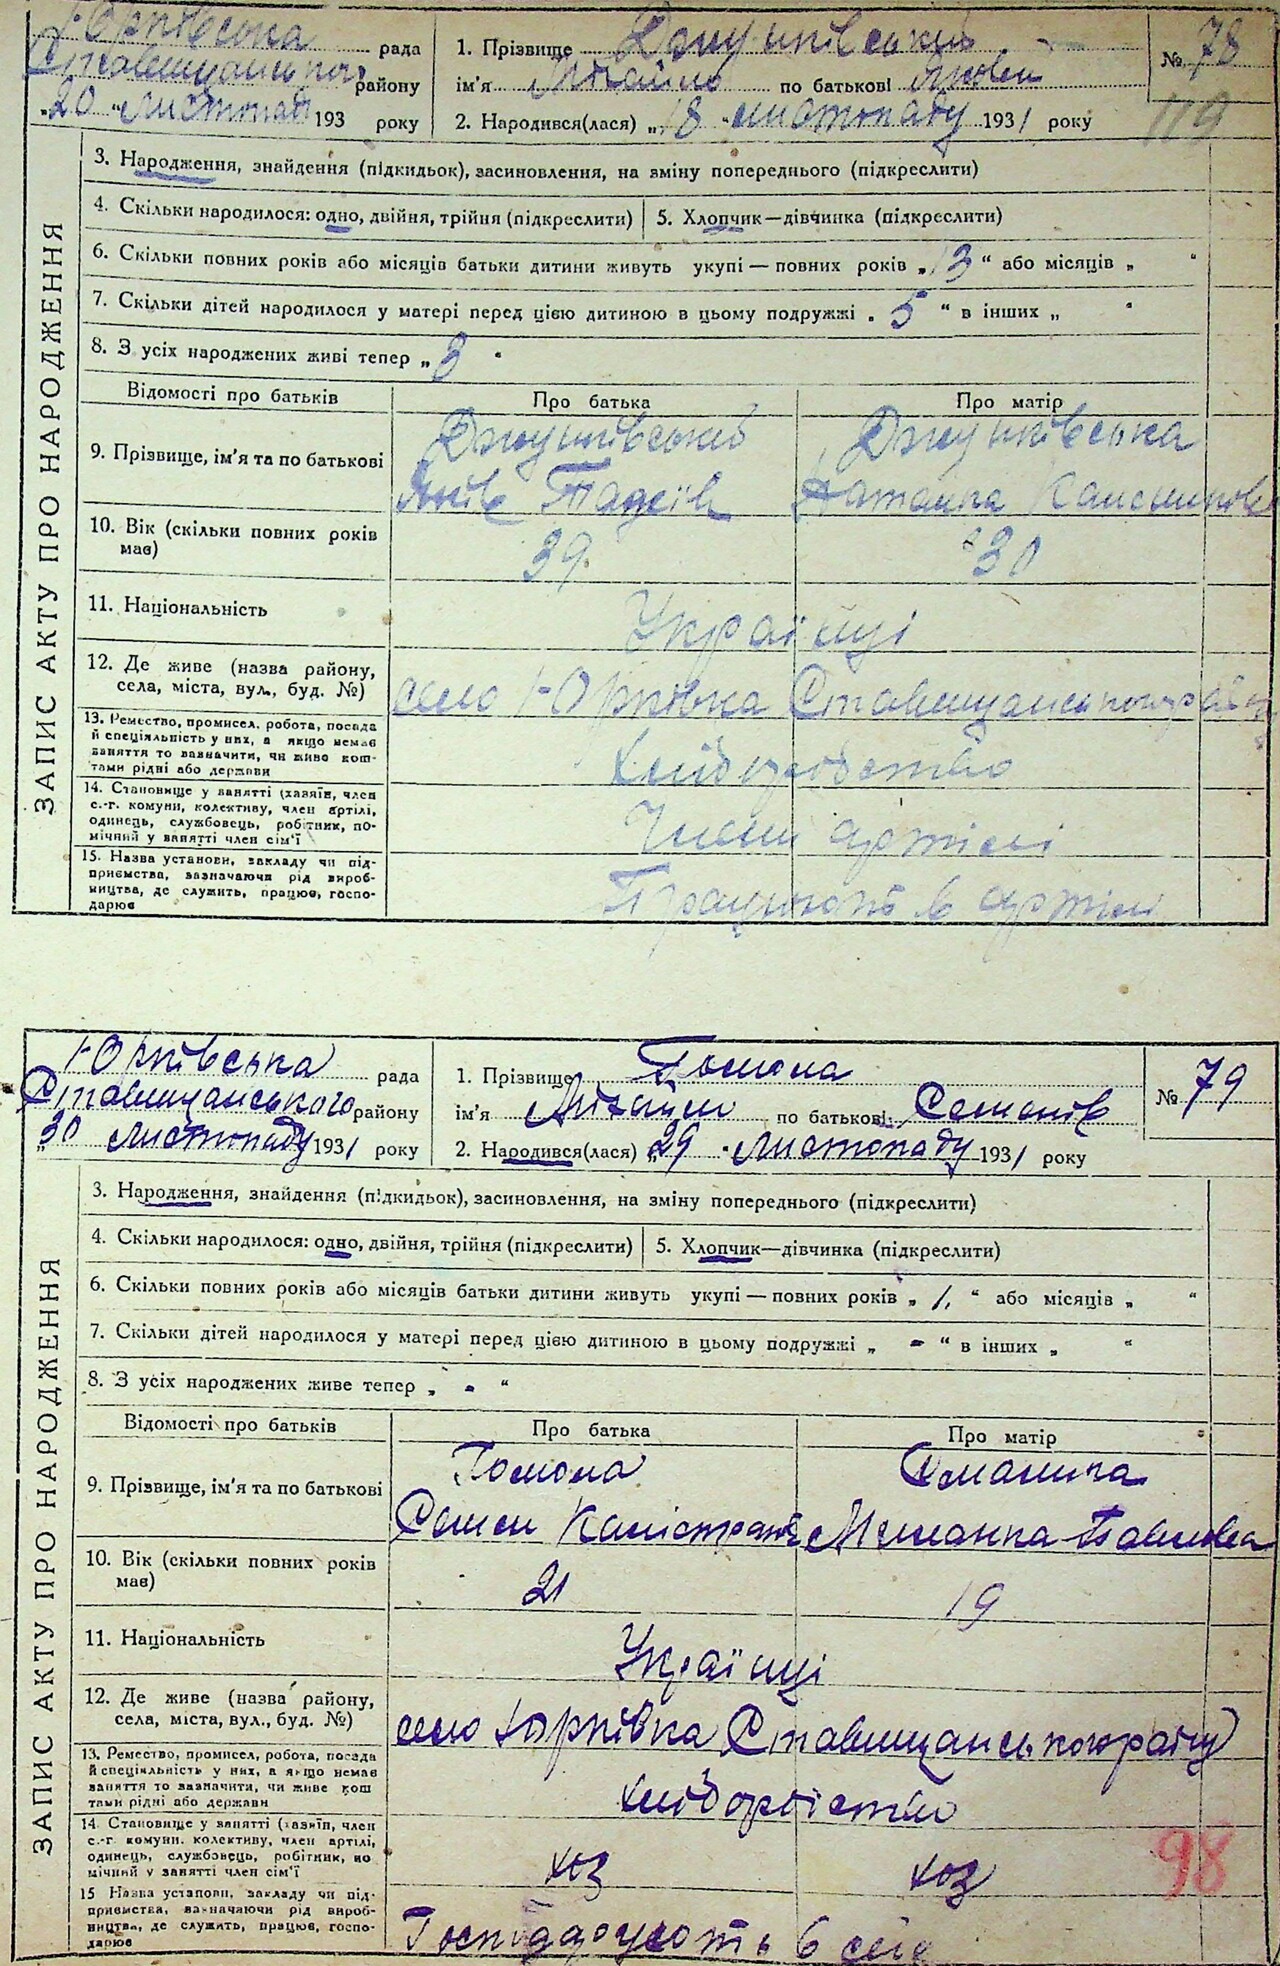 Юрківська рада
Ставищанського району
"20" Листопад 193 року
1. Прізвище Джунківський
ім'я Михайло по батькові Яковл
2. Народився(лася) „18" листопаду 1931 року
№ 78
119
ЗАПИС АКТУ ПРО НАРОДЖЕННЯ
3. Народження, знайдення (підкидьок), засиновлення, на зміну попереднього (підкреслити)
4. Скільки народилося: одно, двійня, трійня (підкреслити) 5. Хлопчик—дівчинка (підкреслити)
6. Скільки повних років або місяців батьки дитини живуть укупі — повних років „13" або місяців „ "
7. Скільки дітей народилося у матері перед цією дитиною в цьому подружжі „5" в інших „ "
8. З усіх народжених живі тепер „3"
Відомості про батьків Про батька Про матір
9. Прізвище, ім'я та по батькові
Джунківський
Яків Тадеїв
Джунківська
10. Вік (скільки повних років має) 39 30
11. Національність Українці
12. Де живе (назва району, села, міста, вул., буд. №)
село Юрківка Ставищанського рай
13. Ремество, промисел, робота, посада
й спеціяльність у них, а якщо немає
заняття то зазначити, чи живе кош-
тами рідні або держави
Хліборобство
14. Становище у занятті (хазяїн, член
с.-г. комуни, колективу, член артілі,
одинець, службовець, робітник, по-
мічний у занятті член сім'ї
Члени артілі
15. Назва установи, закладу чи під-
приємства, зазначаючи рід вироб-
ництва, де служить, працює, госпо-
дарює
Працюють в артілі
Юрківська рада
Ставищанського району
„30 листопаду 1931 року
1. Прізвище Гомола
ім'я Михайло по батькові Семенів
2. Народився(лася) „29" Листопаду 1931 року
№ 79
ЗАПИС АКТУ ПРО НАРОДЖЕННЯ
3. Народження, знайдення (підкидьок), засиновлення, на зміну попереднього (підкреслити)
4. Скільки народилося: одно, двійня, трійня (підкреслити) 5. Хлопчик—дівчинка (підкреслити)
6. Скільки повних років або місяців батьки дитини живуть укупі — повних років „1." або місяців „ "
7. Скільки дітей народилося у матері перед цією дитиною в цьому подружжі „ - " в інших „ "
8. З усіх народжених живе тепер „ - "
Відомості про батьків Про батька Про матір
9. Прізвище, ім'я та по батькові
Гомола
Семен Калістратів
Павлова
10. Вік (скільки повних років має) 21 19
11. Національність Українці
12. Де живе (назва району, села, міста, вул., буд. №)
село Юрківка Ставищанського райну
13. Ремество, промисел, робота, посада
й спеціяльність у них, а якщо немає
заняття то зазначити, чи живе кош
тами рідні або держави
хліборобство
14. Становище у занятті (хазяїн, член
с.-г. комуни, колективу, член артілі,
одинець, службовець, робітник, по
мічний у занятті член сім'ї
хоз хоз
98
15 Назва установи, закладу чи під-
приємства, зазначаючи рід вироб-
ництва, де служить, працює, госпо-
дарює
Господарують в селі